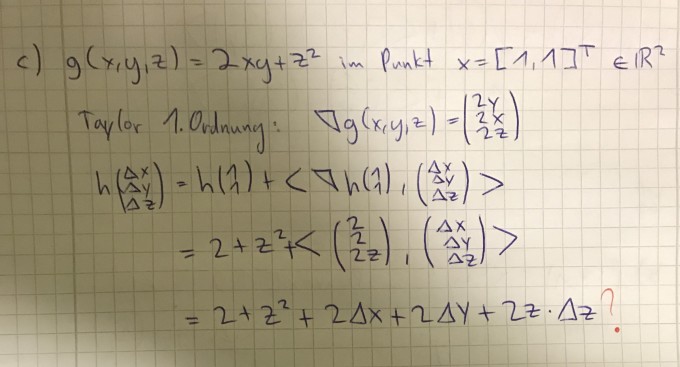 c) g(x,y,z) = 2xy + z² im Punkt x = [1,1]ᵀ ∈ ℝ²
Taylor 1. Ordnung: ∇g(x,y,z) = (2y 2x 2z)
h(Δx Δy Δz) = h(1 1) + < ∇h(1 1), (Δx Δy Δz) >
= 2 + z² + < (2 2 2z), (Δx Δy Δz) >
= 2 + z² + 2Δx + 2Δy + 2z · Δz ?